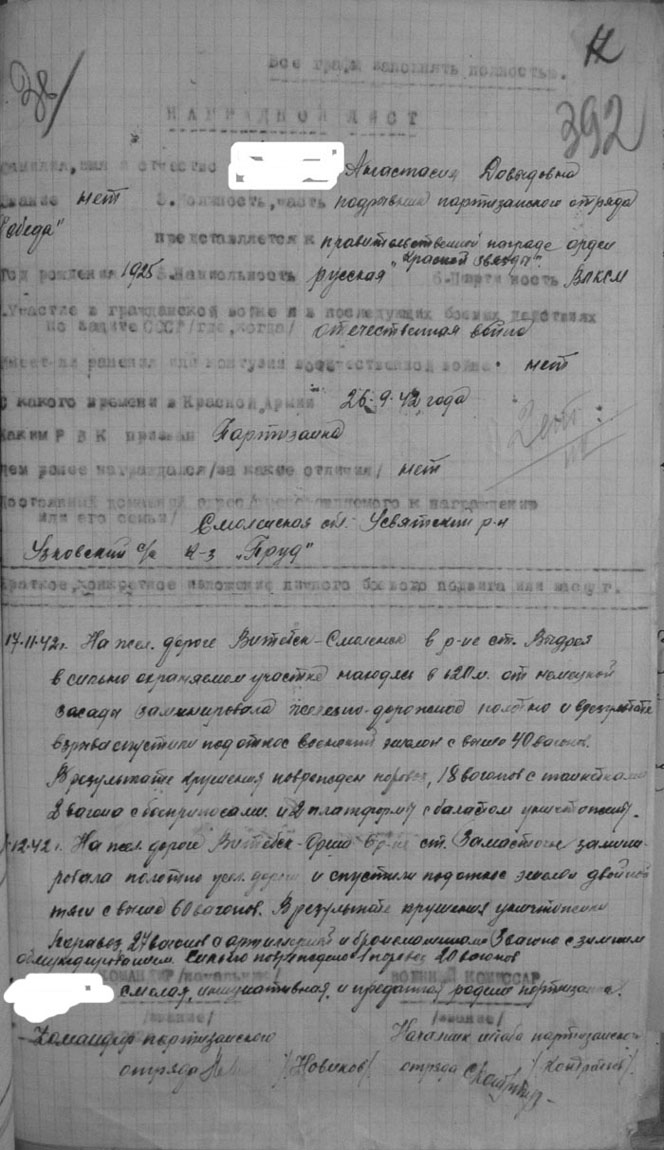 38/
12
Все графы заполнять полностью.
НАГРАДНОЙ ЛИСТ
392
Фамилия, имя и отчество Анастасия Давыдовна
Звание нет 3. Должность, часть подрывник партизанского отряда
"Победа"
представляется к правительственной награде орден
"Красной звезды".
Год рождения 1925 5. Национальность русская 6. Партийность ВЛКСМ
Участие в гражданской войне и в последующих боевых действиях
по защите СССР /где, когда/ отечественная война
Имеет-ли ранения или контузии в отечественной войне. нет
С какого времени в Красной Армии 26.9.42 года
Каким РВК призван Партизанка
Чем ранее награждался /за какое отличие/ нет
Постоянный домашний адрес/представляемого к награждению
или его семьи/ Смоленская обл. Усвятский р-н
Узковский с/с к-з "Пруд"
Краткое, конкретное изложение личного боевого подвига или заслуг.
17.11.42г. На жел. дороге Витебск-Смоленск в р-не ст. Выдрея
в сильно охраняемом участке находясь в 120м. от немецкой
засады заминировала железно-дорожное полотно и в результате
взрыва спустили под откос военный эшалон с выше 40 вагонов.
В результате крушения поврежден паровоз, 18 вагонов с танкетками
2 вагона с боеприпасами и 2 платформы с баластом уничтожены.
12.42г. На жел. дороге Витебск-Орша в р-не ст. Замосточье замини-
ровала полотно жел. дороги и спустили под откос эшелон двойной
тяги с выше 60 вагонов. В результате крушения уничтожены
паровоз, 27 вагонов с артиллерией и 3 вагона с зимним
обмундированием. Сильно повреждено 1 паровоз 20 вагонов
КОМАНДИР /начальник/ ВОЕННЫЙ КОМИССАР
смелая, инициативная и преданная родине партизанка.
/звание/ /звание/
Командир партизанского Начальник штаба партизанского
отряда /Новиков/. отряда /Кондратьев/.